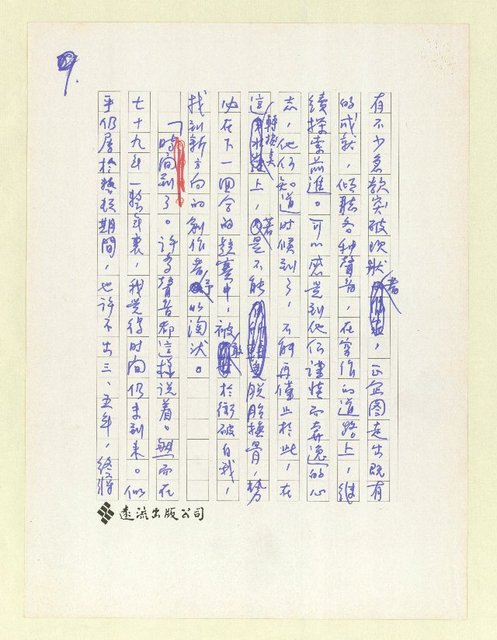 9.
有不少意欲突破現狀者，正企圖走出既有
的成就，傾聽各種聲音，在寫作的道路上，繼
續探索前進。可以感覺到他們謹慎而奔逸的心
志，他們知道時候到了，不能再停止於此，在
這轉換點上，若是不能脫胎換骨，勢
必在下一回合的競賽中，被敢於衝破自我，
找到新方向的創作者予以淘汰。
「時間到了。許多聲音都這樣說着。然而在
七十九年一整年裏，我覺得時間仍未到來。似
乎仍屬於轉換期間，也許不出三、五年，終將
遠流出版公司